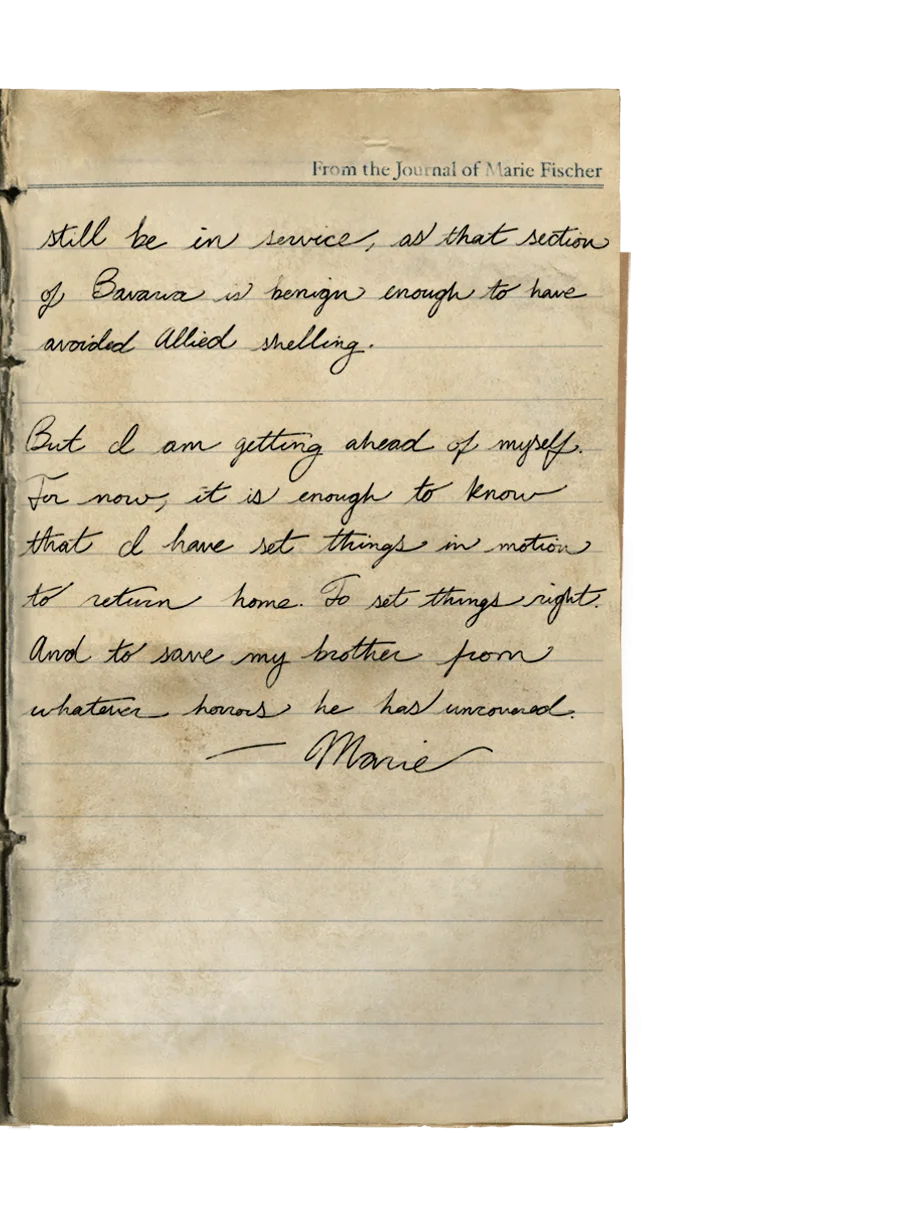 From the Journal of Marie Fischer
still be in service, as that section
of Bavaria is benign enough to have
avoided Allied shelling.
But I am getting ahead of myself.
For now, it is enough to know
that I have set things in motion
to return home. To set things right.
And to save my brother from
whatever horrors he has uncovered.
— Marie